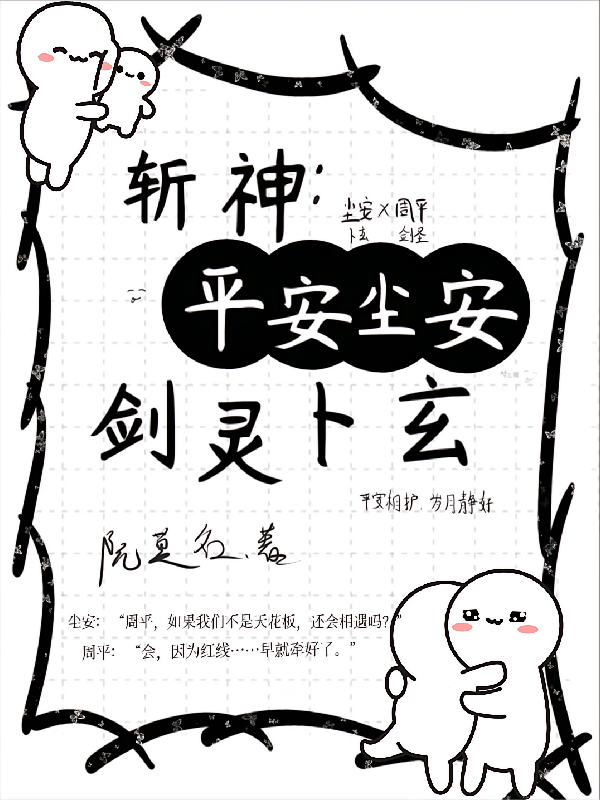 斩神：
尘安×周平
卜玄 剑圣
平安尘安
剑灵卜玄
平安相护，岁月静好
阮莫名.著
尘安：“周平，如果我们不是天花板，还会相遇吗？”
周平：“会，因为红线……早就牵好了。”